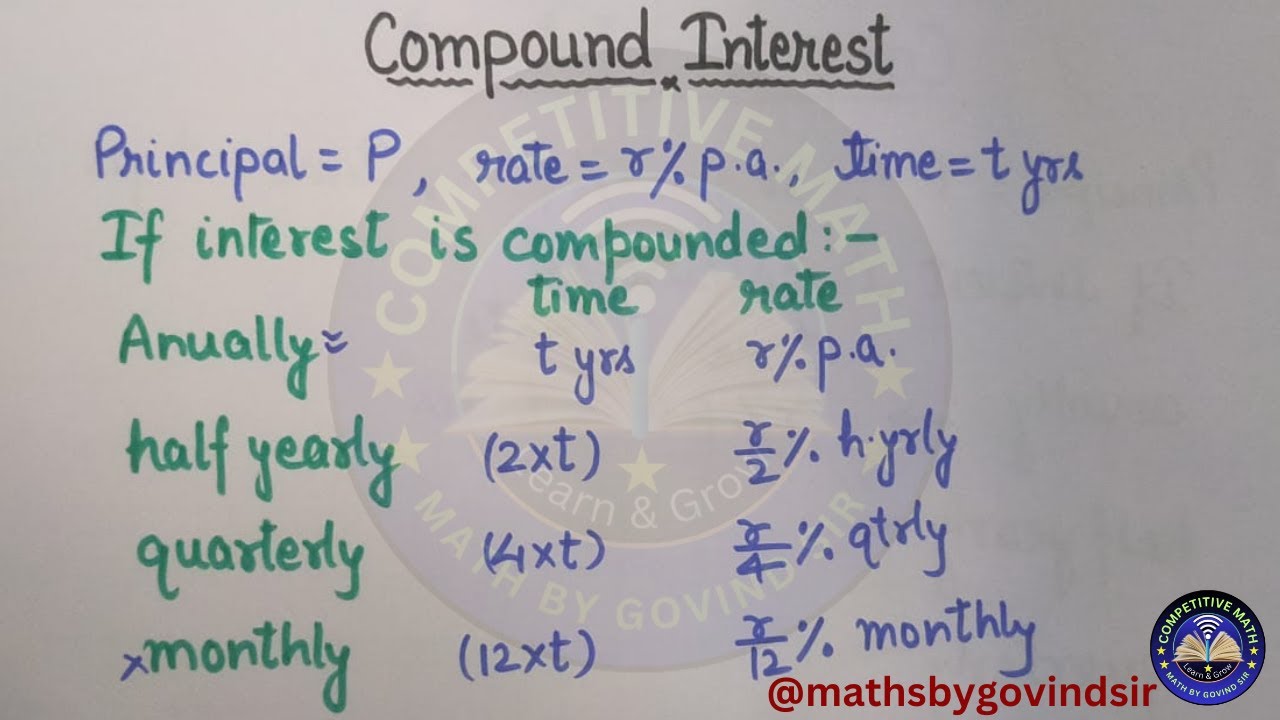 Compound Interest
Principal = P, rate = r% p.a., time = t yrs
If interest is compounded :-
time rate
Anually t yrs r% p.a.
half yearly (2×t) r/2 % h.yrly
quarterly (4×t) r/4 % qtrly
×monthly (12×t) r/12 % monthly
@mathsbygovindsir
COMPETITIVE MATH
Learn & Grow
MATH BY GOVIND SIR
COMPETITIVE MATH
Learn & Grow
MATH BY GOVIND SIR